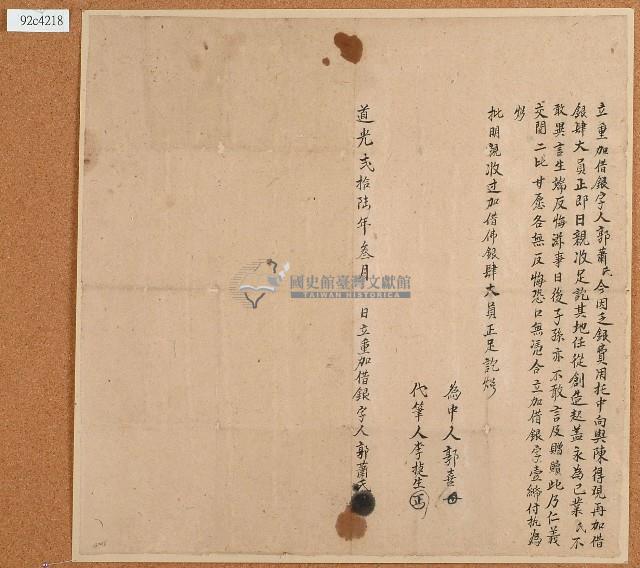 92c4218
立重加借銀字人郭蕭氏今因乏銀費用托中向與陳得現再加借
銀肆大員正即日親收足訖其地任從創造起蓋永為己業氏不
敢異言生端反悔滋事日後子孫亦不敢言及贈贖此乃仁義
交関二比甘愿各無反悔恐口無憑合立加借銀字壹紙付执為
炤
批明親收过加借佛銀肆大員正足訖炤
為中人郭喜
代筆人李捷生
道光弍拾陸年叁月 日立重加借銀字人郭蕭氏
國史館臺灣文獻館
TAIWAN HISTORICA